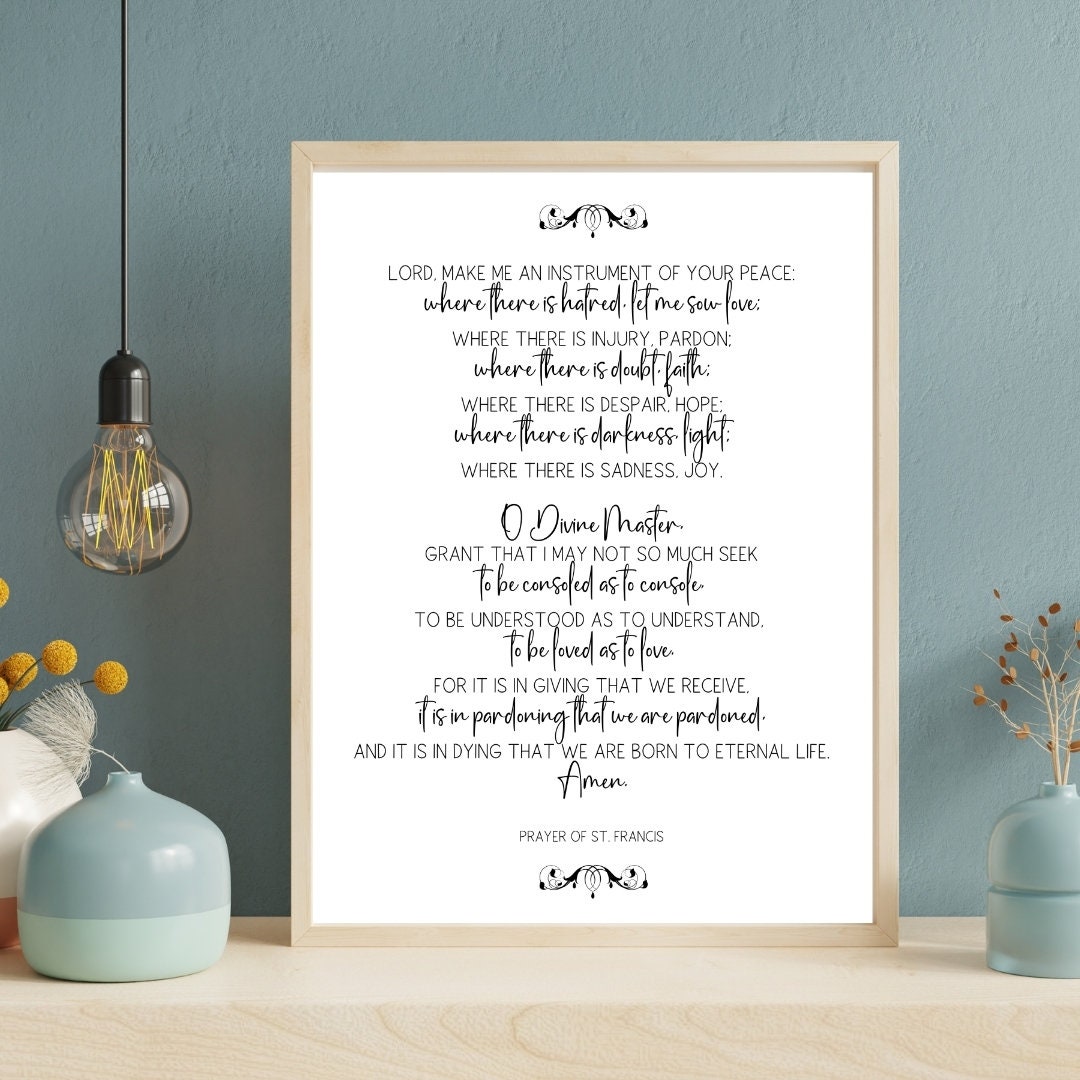 LORD, MAKE ME AN INSTRUMENT OF YOUR PEACE:
where there is hatred, let me sow love;
WHERE THERE IS INJURY, PARDON;
where there is doubt, faith;
WHERE THERE IS DESPAIR, HOPE;
where there is darkness, light;
WHERE THERE IS SADNESS, JOY.
O Divine Master,
GRANT THAT I MAY NOT SO MUCH SEEK
to be consoled as to console,
TO BE UNDERSTOOD AS TO UNDERSTAND,
to be loved as to love.
FOR IT IS IN GIVING THAT WE RECEIVE,
it is in pardoning that we are pardoned,
AND IT IS IN DYING THAT WE ARE BORN TO ETERNAL LIFE.
Amen.
PRAYER OF ST. FRANCIS